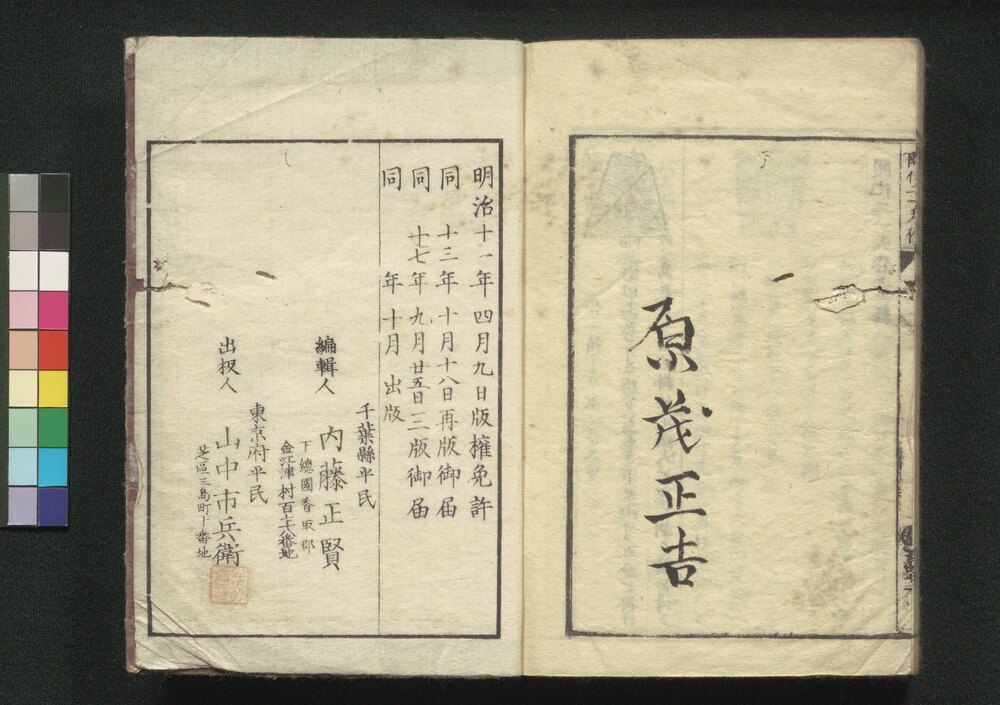 原茂正吉
明治十一年四月九日版権免許
同 十三年十月十八日再版御届
同 十七年九月廿五日三版御届
同 年十月出版
千葉縣平民
編輯人 内藤正賢
下總國香取郡
金江津村百七番地
東京府平民
出板人 山中市兵衛
芝區三島町十番地